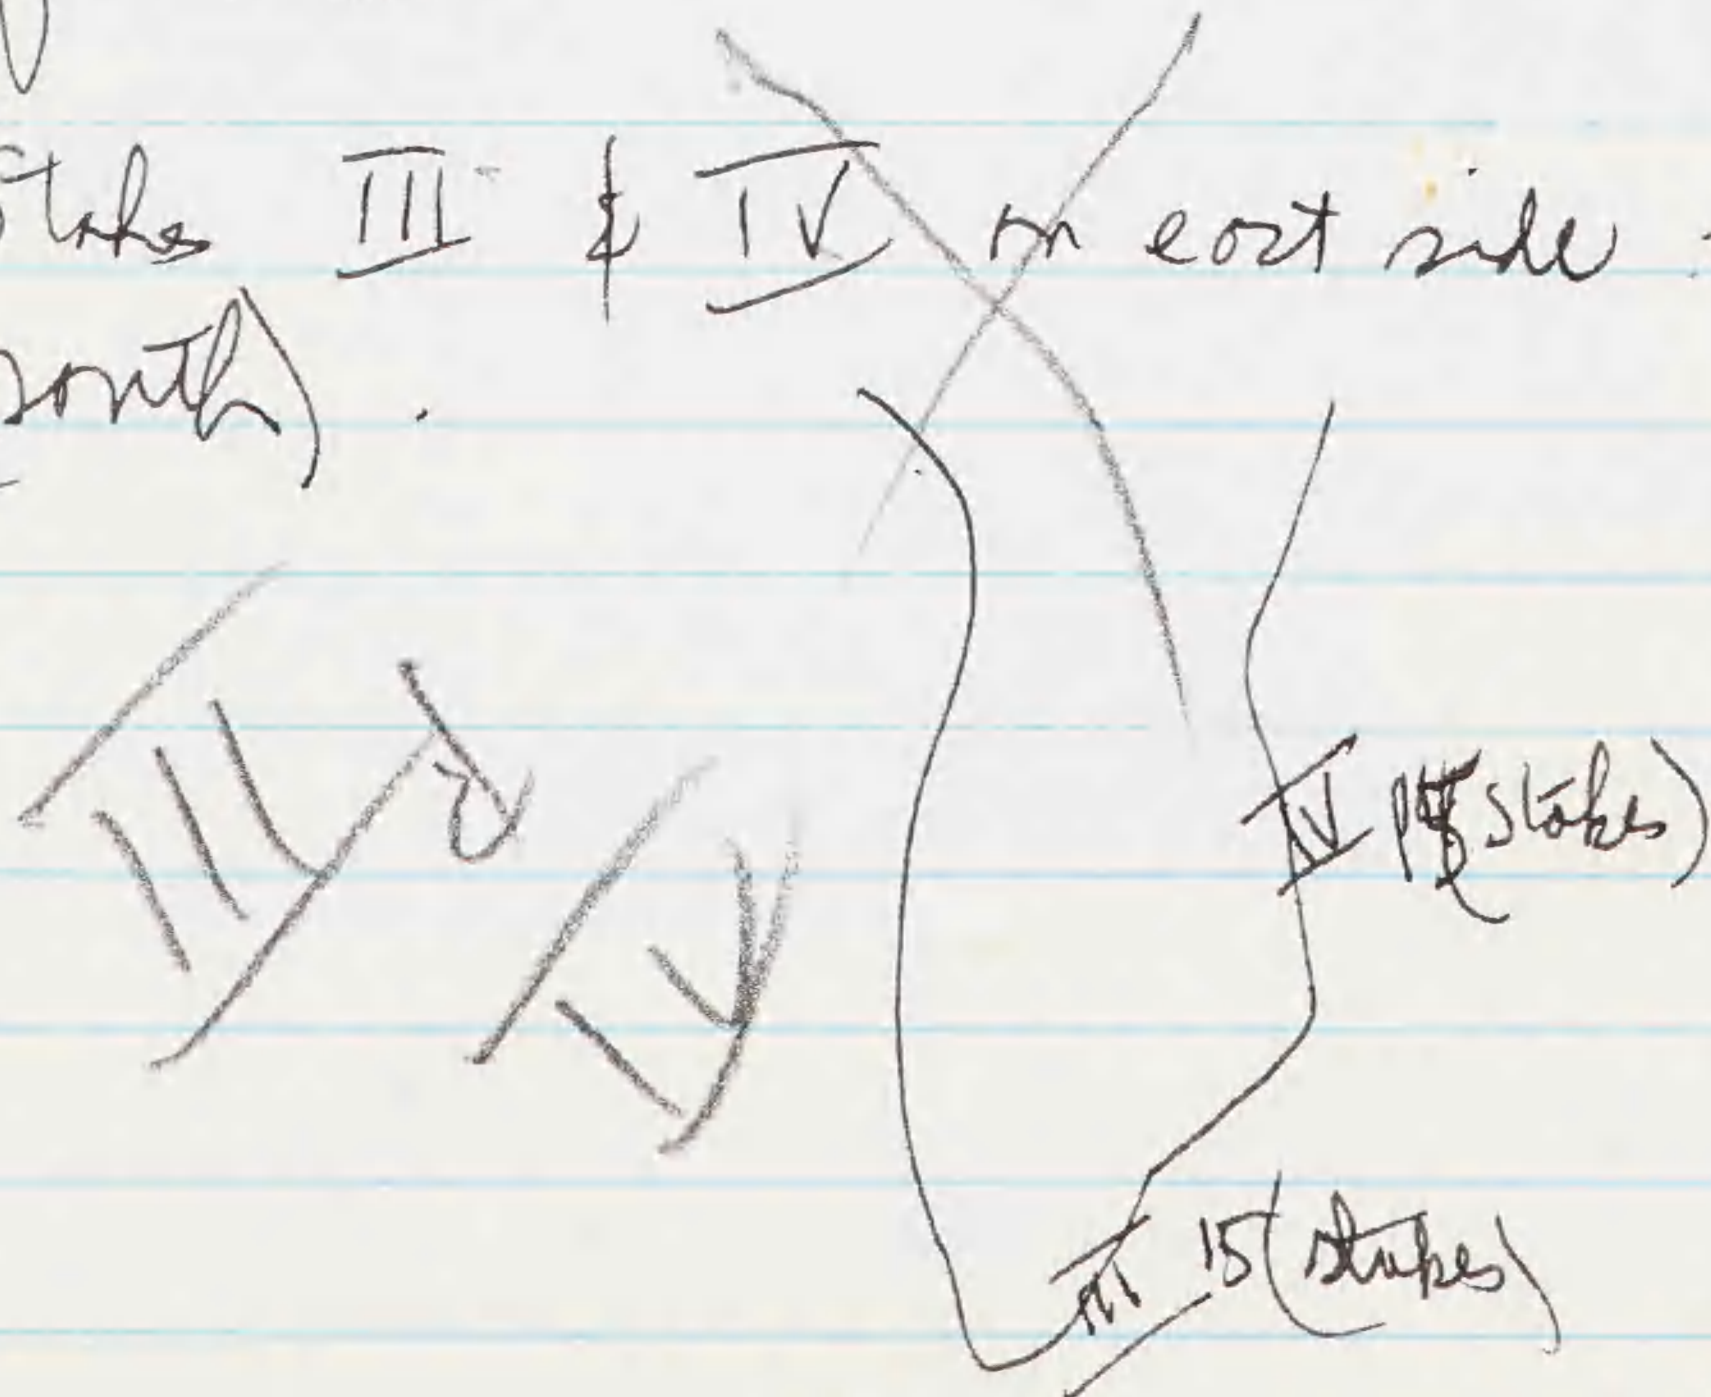 Stakes III & IV on east side
south).
III & IV
IV (stakes)
III 15 (stakes)